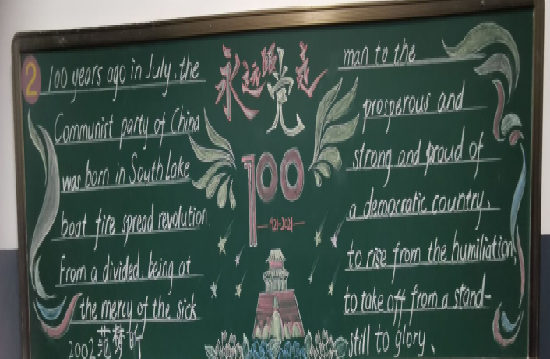 2
100 years ago in July, the
Communist party of China
was born in South lake
boat fire spread revolution
From a divided, being at
the mercy of the sick
2002范梦
永远跟党走
100
1921-2021
man to the
prosperous and
strong and proud of
a democratic country,
to rise from the humiliation,
to take off from a stand-
still to glory.